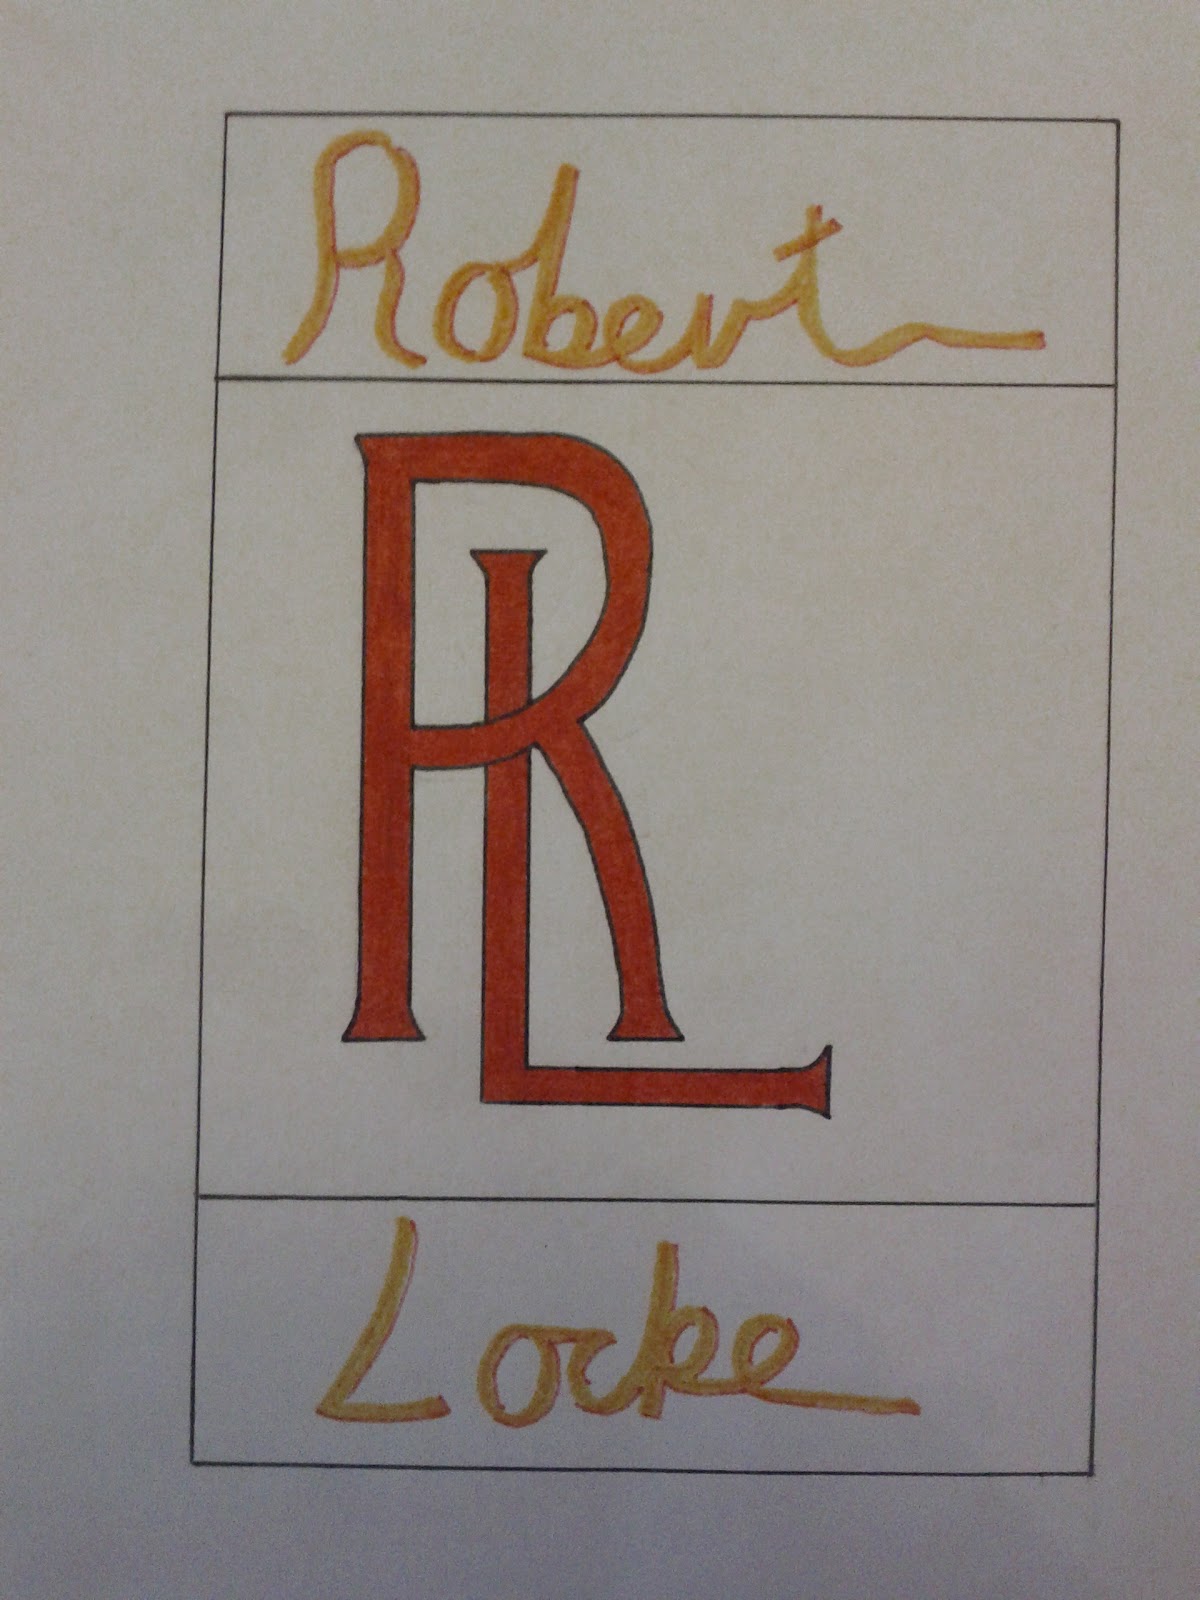 Robert
RL
Locke